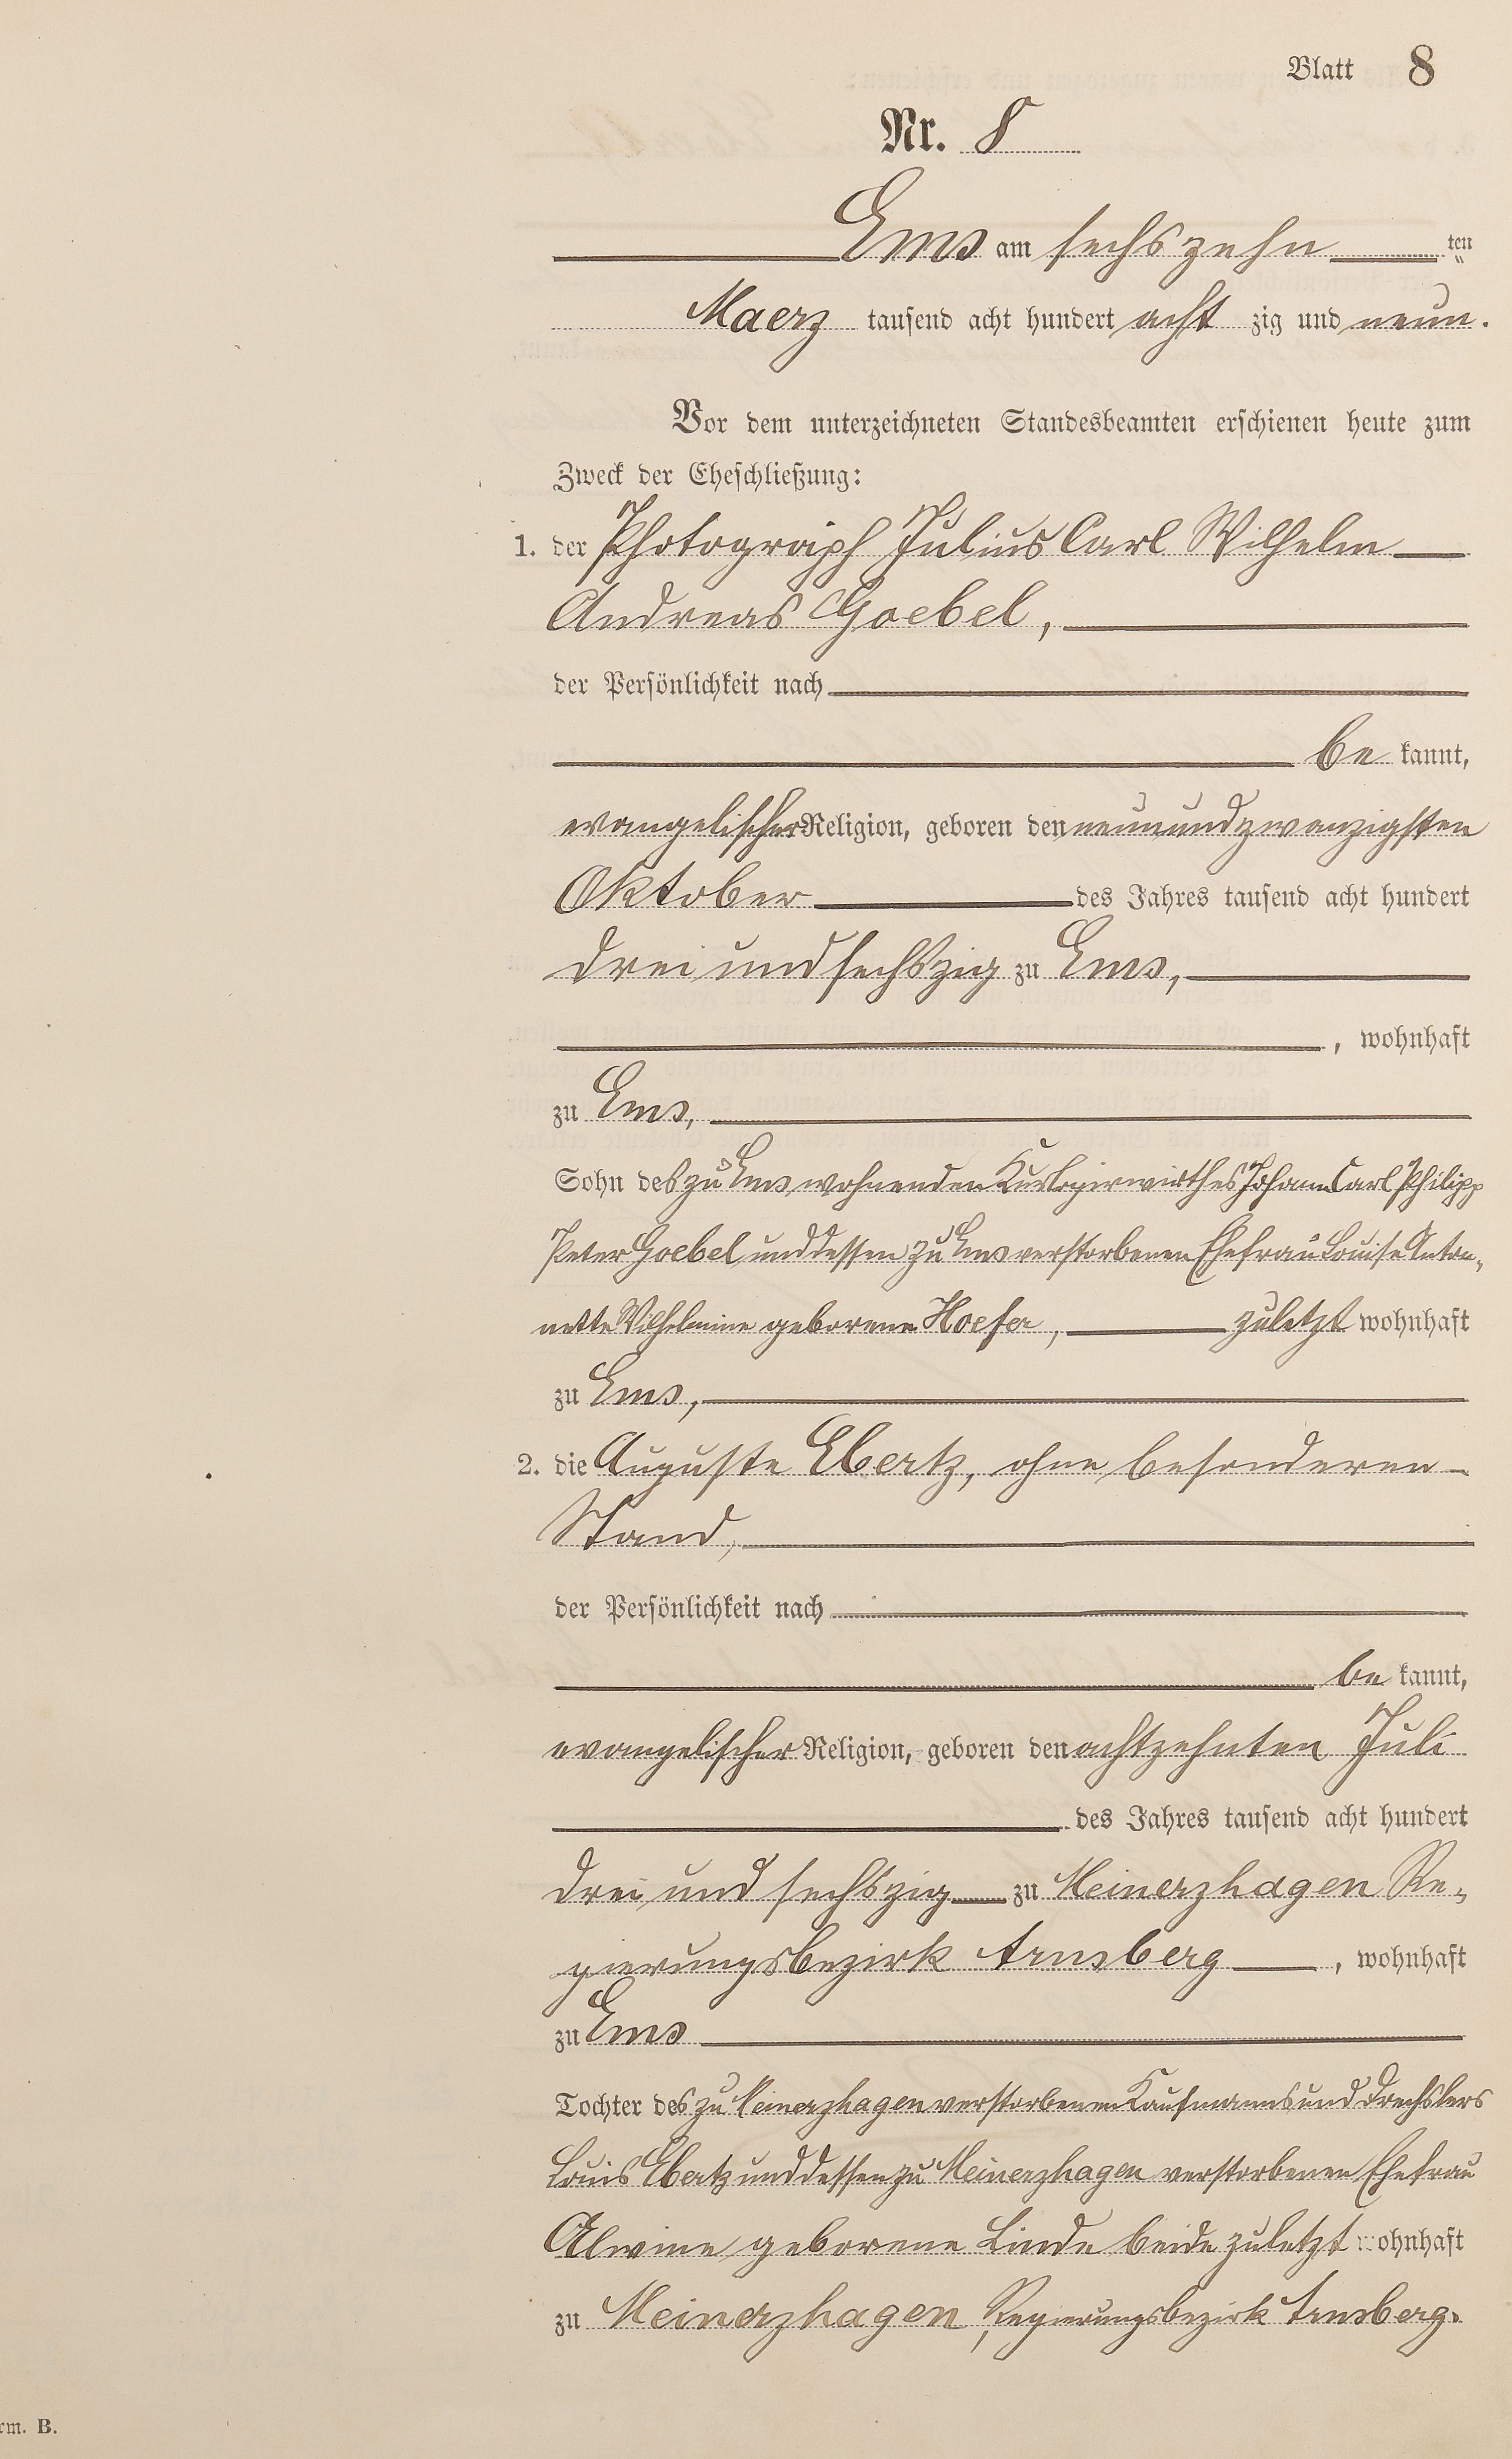 Blatt 8
Nr. 8
Ems am sechszehn ten
Maerz tausend acht hundert acht zig und neun.
Vor dem unterzeichneten Standesbeamten erschienen heute zum
Zweck der Eheschließung:
1. der Photograph Julius Carl Wilhelm
Andreas Goebel,
der Persönlichkeit nach
be kannt,
evangelischer Religion, geboren den neunundzwanzigsten
Oktober des Jahres tausend acht hundert
drei und sechszig zu Ems,
, wohnhaft
zu Ems,
Sohn des zu Ems wohnenden Kurlogirwirthes Johann Carl Philipp
Peter Goebel und dessen zu Ems verstorbenen Ehefrau Louise Anton-
nette Wilhelmine geborene Hoefer, zuletzt wohnhaft
zu Ems,
2. die Auguste Ebertz, ohne besonderen
Stand,
der Persönlichkeit nach
be kannt,
evangelischer Religion, geboren den achtzehnten Juli
des Jahres tausend acht hundert
drei und sechszig zu Meinerzhagen Re-
gierungsbezirk Arnsberg, wohnhaft
zu Ems
Tochter des zu Meinerzhagen verstorbenen Kaufmanns und Drechslers
Louis Ebertz und dessen zu Meinerzhagen verstorbenen Ehefrau
Alwine geborene Linde beide zuletzt wohnhaft
zu Meinerzhagen, Regierungsbezirk Arnsberg.
rm. B.